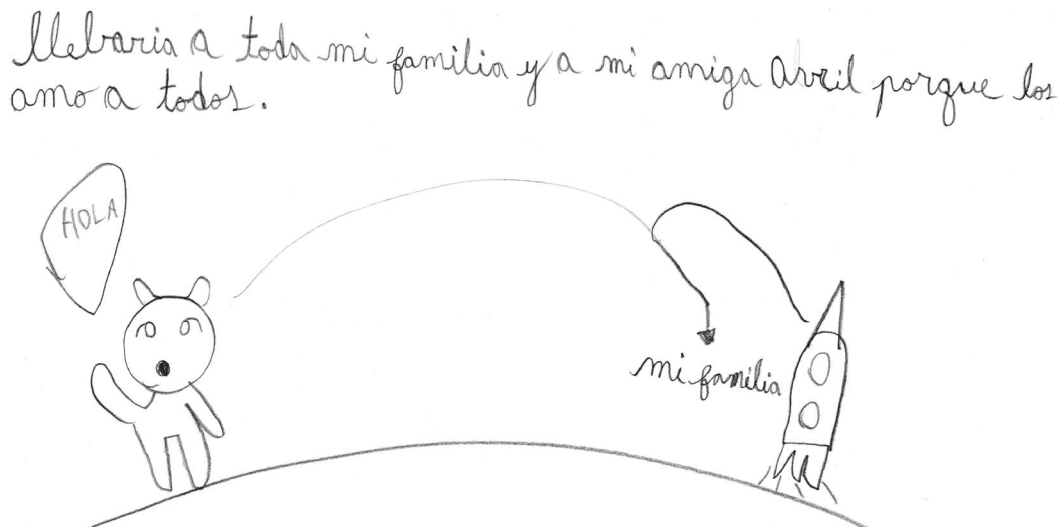 llebaria a toda mi familia y a mi amiga Abril porque los
amo a todos.
HOLA
mi familia